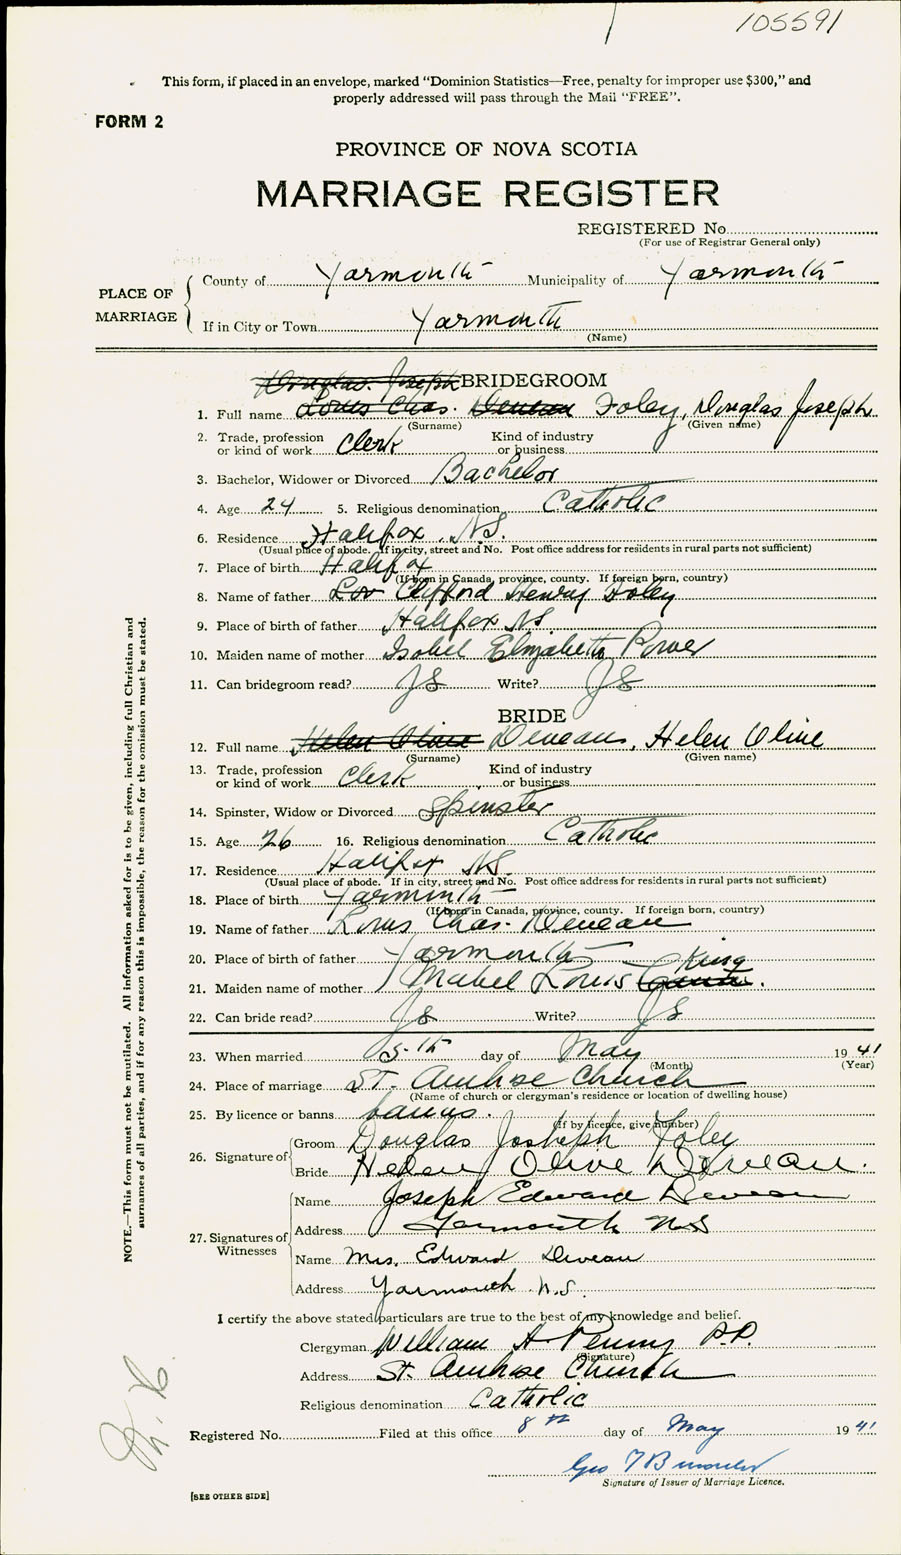 105591
This form, if placed in an envelope, marked “Dominion Statistics—Free, penalty for improper use $300,” and
properly addressed will pass through the Mail “FREE”.
FORM 2
PROVINCE OF NOVA SCOTIA
MARRIAGE REGISTER
REGISTERED No.
(For use of Registrar General only)
PLACE OF MARRIAGE
County of Yarmouth Municipality of Yarmouth
If in City or Town Yarmouth
(Name)
Douglas Joseph BRIDEGROOM
1. Full name Louis Chas. Deveau Foley, Douglas Joseph
(Surname) (Given name)
2. Trade, profession or kind of work Clerk Kind of industry or business
3. Bachelor, Widower or Divorced Bachelor
4. Age 24 5. Religious denomination Catholic
6. Residence Halifax N.S.
(Usual place of abode. If in city, street and No. Post office address for residents in rural parts not sufficient)
7. Place of birth Halifax
(If born in Canada, province, county. If foreign born, country)
8. Name of father Lou Clifford Henry Foley
9. Place of birth of father Halifax NS
10. Maiden name of mother Isobel Elizabeth Power
11. Can bridegroom read? Write?
BRIDE
12. Full name Helen Olive Deveau, Helen Olive
(Surname) (Given name)
13. Trade, profession or kind of work Clerk Kind of industry or business
14. Spinster, Widow or Divorced Spinster
15. Age 26 16. Religious denomination Catholic
17. Residence Halifax N.S.
(Usual place of abode. If in city, street and No. Post office address for residents in rural parts not sufficient)
18. Place of birth Yarmouth
(If born in Canada, province, county. If foreign born, country)
19. Name of father Louis Chas. Deveau
20. Place of birth of father Yarmouth
21. Maiden name of mother Mabel Louis King
22. Can bride read? Write?
23. When married 5th day of May 1941
(Month) (Year)
24. Place of marriage St. Ambrose Church
(Name of church or clergyman's residence or location of dwelling house)
25. By licence or banns banns.
(If by licence, give number)
26. Signature of Groom Douglas Josheph Foley
Bride Helen Olive Deveau.
27. Signatures of Witnesses
Name Joseph Edward Deveau
Address Yarmouth N.S
Name Mrs. Edward Deveau
Address Yarmouth N.S.
I certify the above stated particulars are true to the best of my knowledge and belief.
Clergyman William A Penny P.P.
(Signature)
Address St. Ambrose Church
Religious denomination Catholic
Registered No. Filed at this office 8th day of May 1941
Geo
Signature of Issuer of Marriage Licence.
[SEE OTHER SIDE]
NOTE.—This form must not be mutilated. All information asked for is to be given, including full Christian and
surnames of all parties, and if for any reason this is impossible, the reason for the omission must be stated.